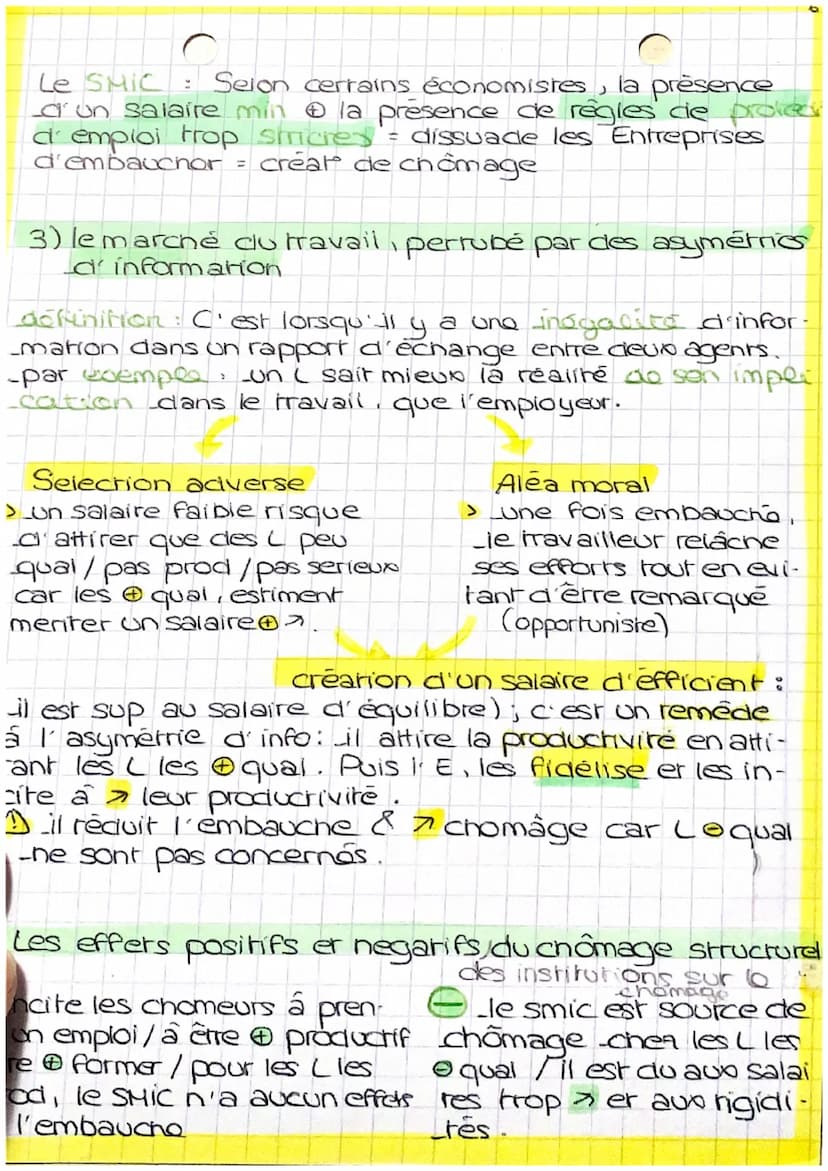 Le SMIC : Selon certains économistes, la présence
d'un salaire min ⊕ la présence de règles de protect
d'emploi trop strictes = dissuade les Entreprises
d'embaucher = créat° de chômage
3) le marché du travail, pertubé par des asymétries
d'information
définition : C'est lorsqu'il y a une inégalité d'infor-
mation dans un rapport d'échange entre deux agents.
par exemple : un L sait mieux la réalité de son impli
cation dans le travail, que l'employeur.
Selection adverse
> un salaire faible risque
d'attirer que des L peu
qual / pas prod / pas serieux
car les ⊕ qual, estiment
meriter un salaire ⊕ ↗.
Aléa moral
> une fois embauché,
le travailleur relâche
ses efforts tout en evi-
tant d'être remarqué
(opportuniste)
création d'un salaire d'éfficient :
il est sup au salaire d'équilibre) ; c'est un remède
à l'asymétrie d'info : il attire la productivité en atti-
rant les L les ⊕ qual. Puis l'E, les fidélise et les in-
cite à ↗ leur productivité.
⚠ il réduit l'embauche & ↗ chomâge car L ⊖ qual
ne sont pas concernés.
Les effets positifs et negatifs du chômage structurel
des institutions sur le
chomage
ncite les chomeurs à pren-
un emploi / à être ⊕ productif
re ⊕ former / pour les L les
od, le SMIC n'a aucun effets
l'embauche
⊖ le smic est source de
chômage chez les L les
⊖ qual / il est du aux salai
res trop ↗ et aux rigidi-
tés.